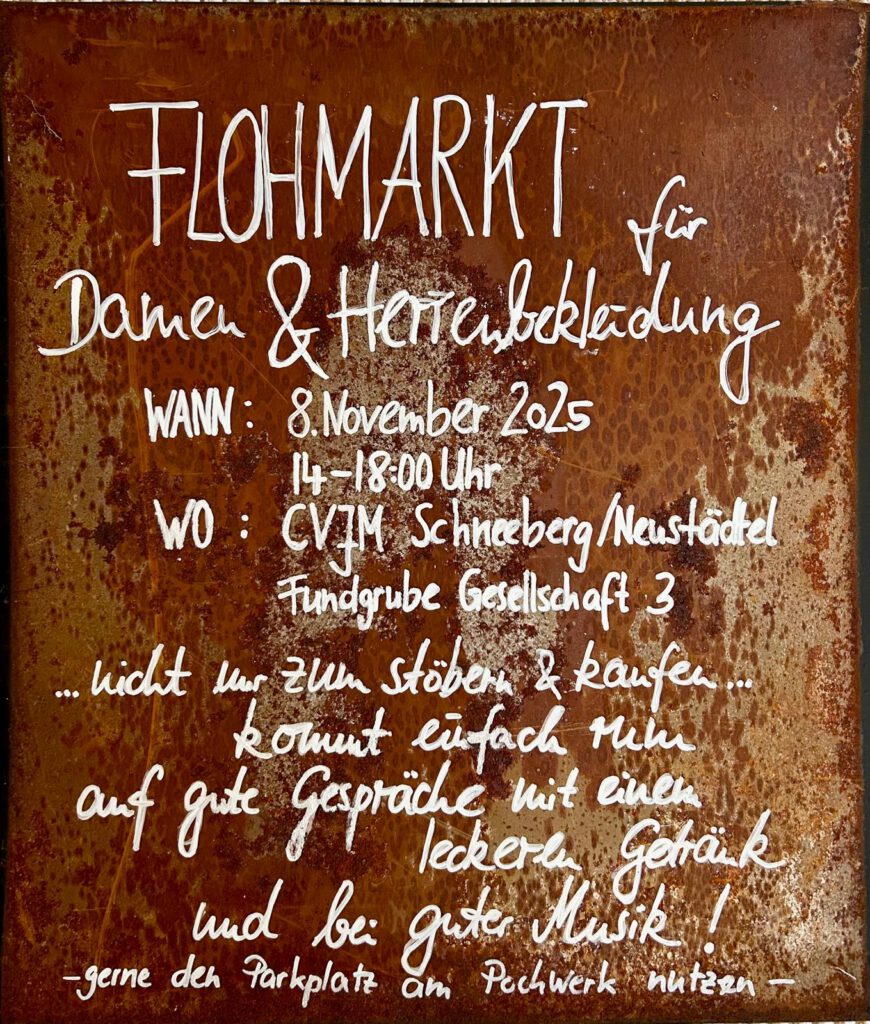 FLOHMARKT für
Damen & Herrenbekleidung
WANN: 8. November 2025
14-18:00 Uhr
WO: CVJM Schneeberg/Neustädtel
Fundgrube Gesellschaft 3
... nicht nur zum stöbern & kaufen...
kommt einfach rum
auf gute Gespräche mit einem
leckeren Getränk
und bei guter Musik!
- gerne den Parkplatz am Pochwerk nutzen -